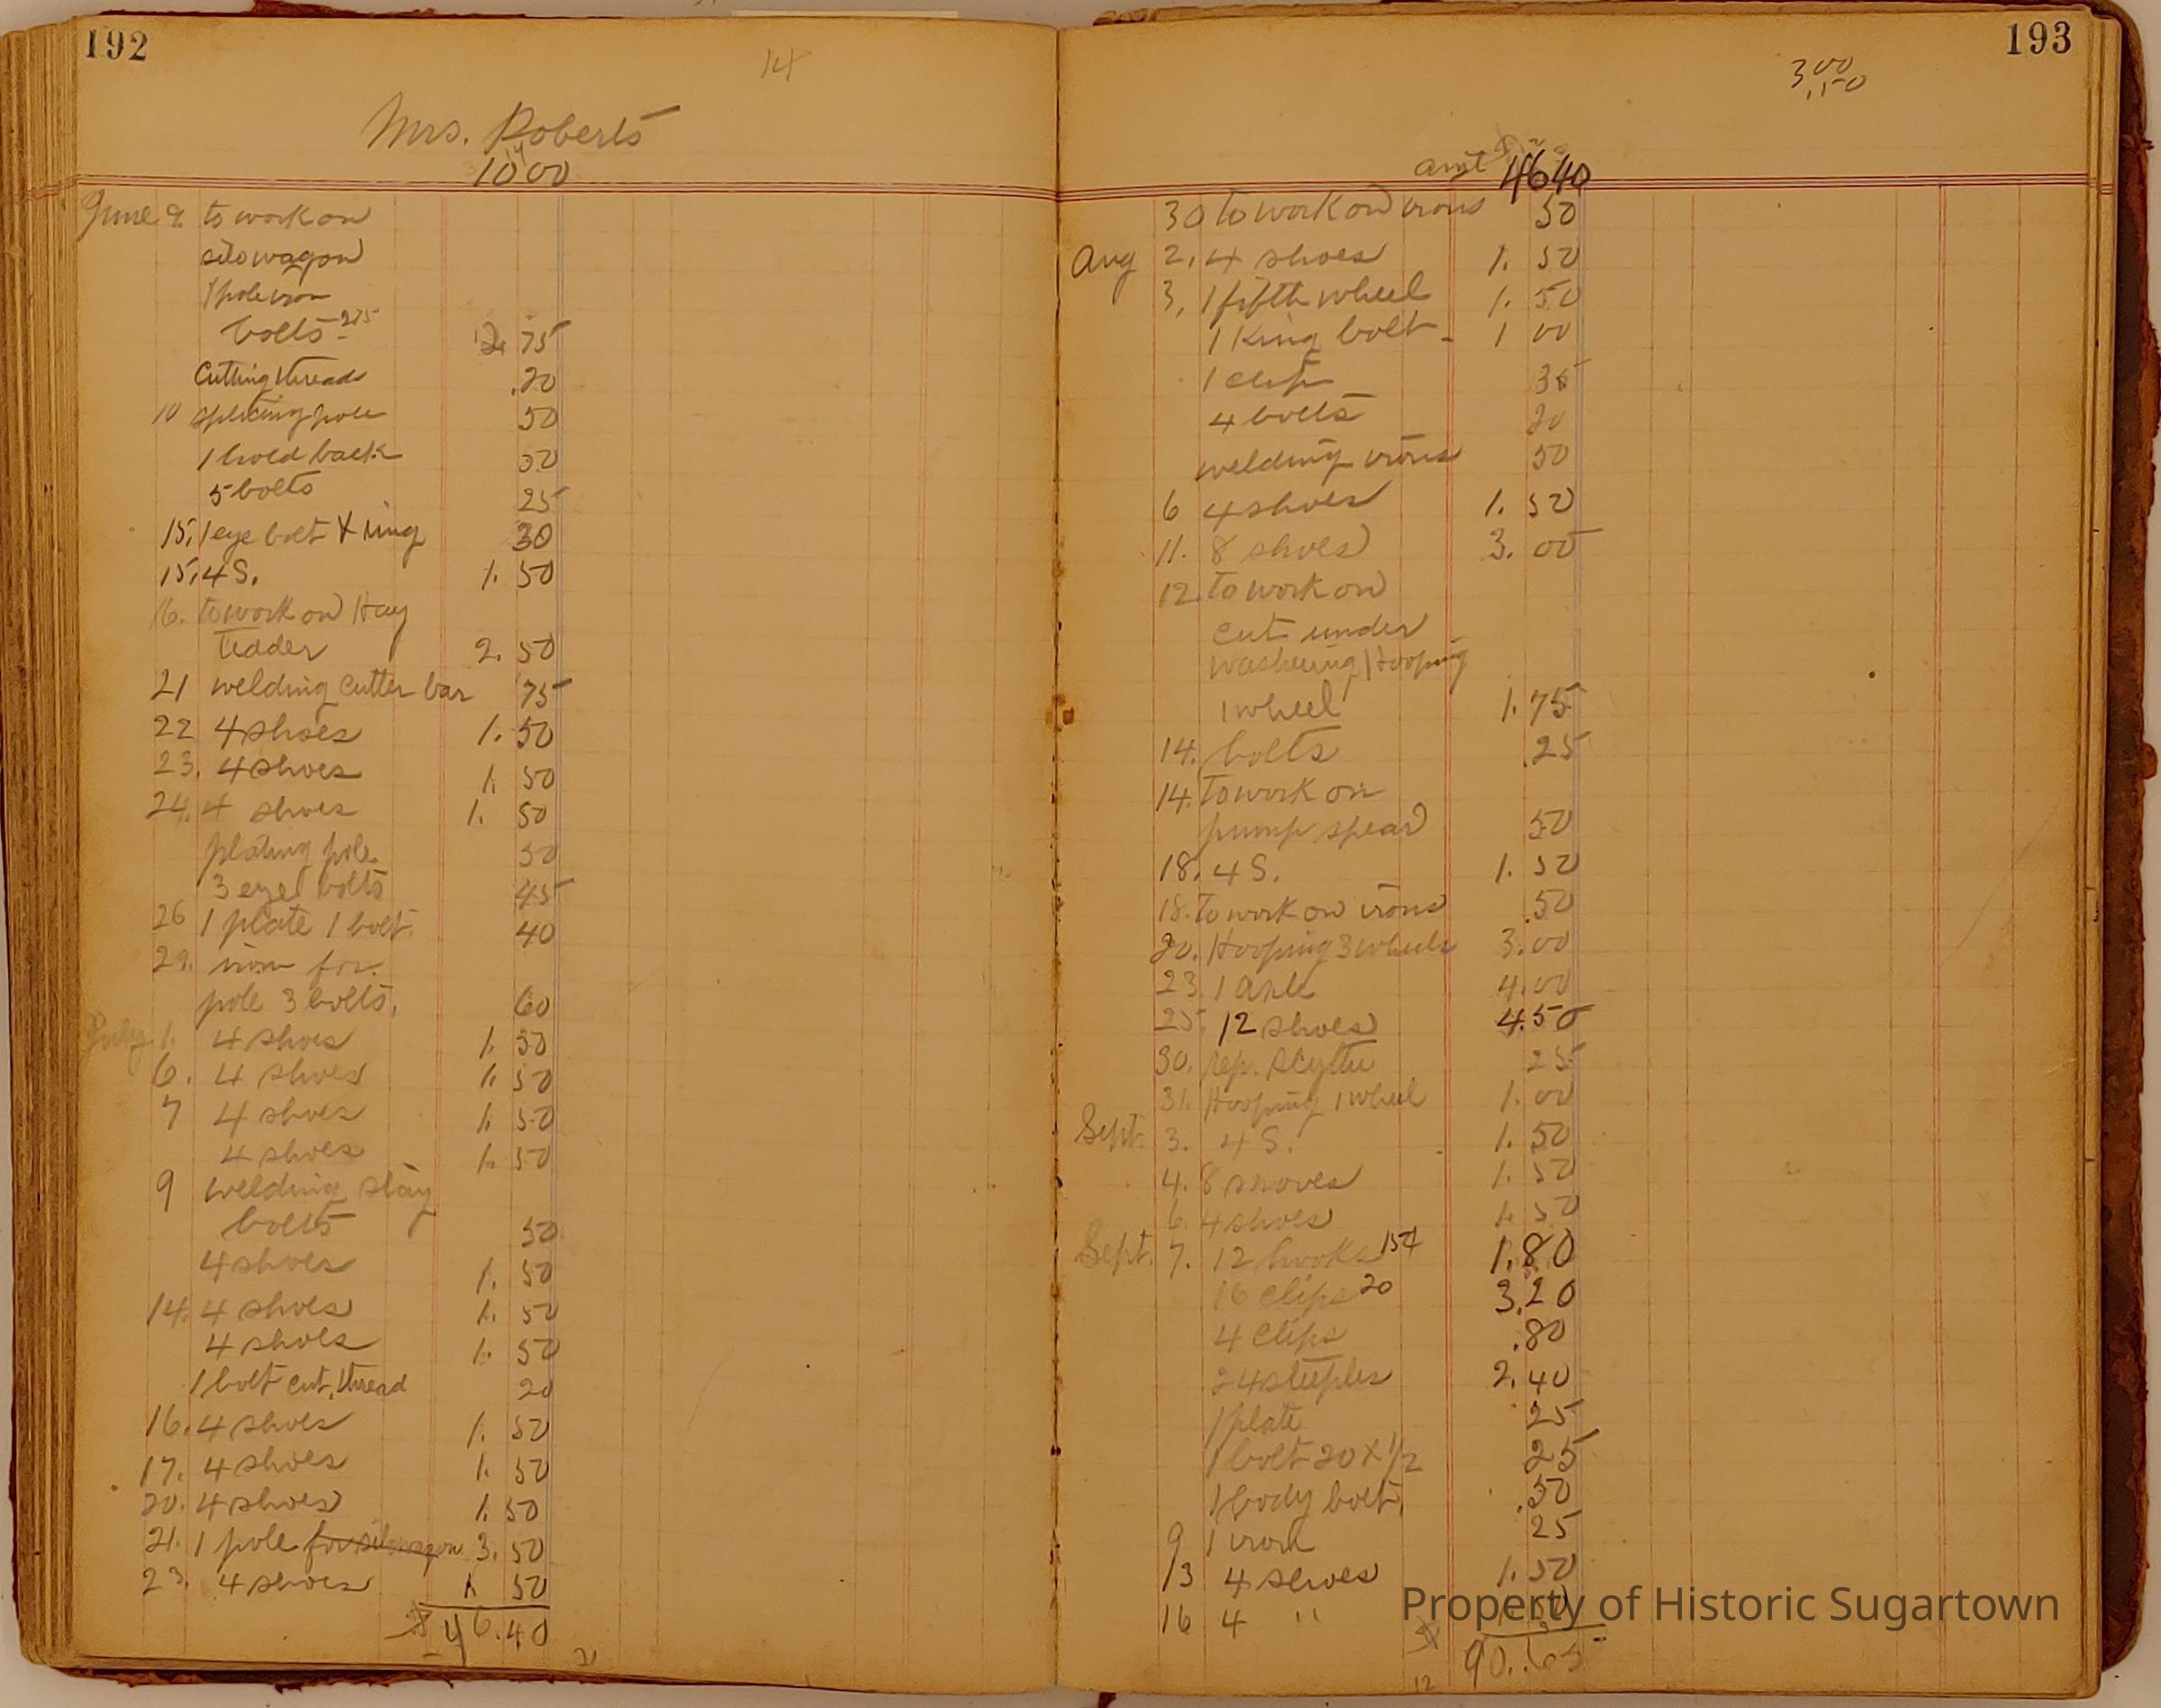 192
14
Mrs. Roberts
1000
June 9 to work on
silo wagon
1 pole iron
bolts - 275 2. 75
Cutting threads .20
10 splicing pole 50
1 hold back 50
5 bolts 25
15, 1 eye bolt & ring 30
15, 4 S. 1. 50
16. to work on Hay
Tedder 2. 50
21 welding cutter bar 75
22 4 shoes 1. 50
23. 4 shoes 1. 50
24. 4 shoes 1. 50
plating pole. 50
3 eye bolts 45
26 1 plate 1 bolt 40
29. iron for
pole 3 bolts, 60
July 1. 4 shoes 1. 50
6. 4 shoes 1. 50
7 4 shoes 1. 50
4 shoes 1. 50
9 welding stay
bolts 50
4 shoes 1. 50
14. 4 shoes 1. 50
4 shoes 1. 50
1 bolt cut, thread 20
16. 4 shoes 1. 50
17. 4 shoes 1. 50
20. 4 shoes 1. 50
21. 1 pole for silo wagon 3. 50
23. 4 shoes 1. 50
$ 46.40
193
3 00
.150
amt 4640
30 to work on irons 50
Aug 2, 4 shoes 1. 50
3, 1 fifth wheel 1. 50
1 King bolt - 1 00
1 clip 35
4 bolts 20
welding irons 50
6 4 shoes 1. 50
11. 8 shoes 3. 00
12. to work on
cut under
washering Hooping
1 wheel 1. 75
14. bolts .25
14. to work on
pump spear 50
18. 4 S. 1. 50
18. to work on irons .50
20. Hooping 3 wheels 3.00
23. 1 axle 4.00
25 12 shoes 4.50
30. rep. scythe 25
31. Hooping 1 wheel 1. 00
Sept. 3. 4 S. 1. 50
4. 8 shoes 1. 50
6. 4 shoes 1. 50
Sept. 7. 12 hooks 15¢ 1.80
16 clips 20 3.20
4 clips .80
24 steeples 2. 40
1 plate 25
1 bolt 20 X 1/2 25
1 body bolt, .50
9 1 iron 25
13 4 shoes 1. 50
16 4 "
$ 90..65
12
Property of Historic Sugartown